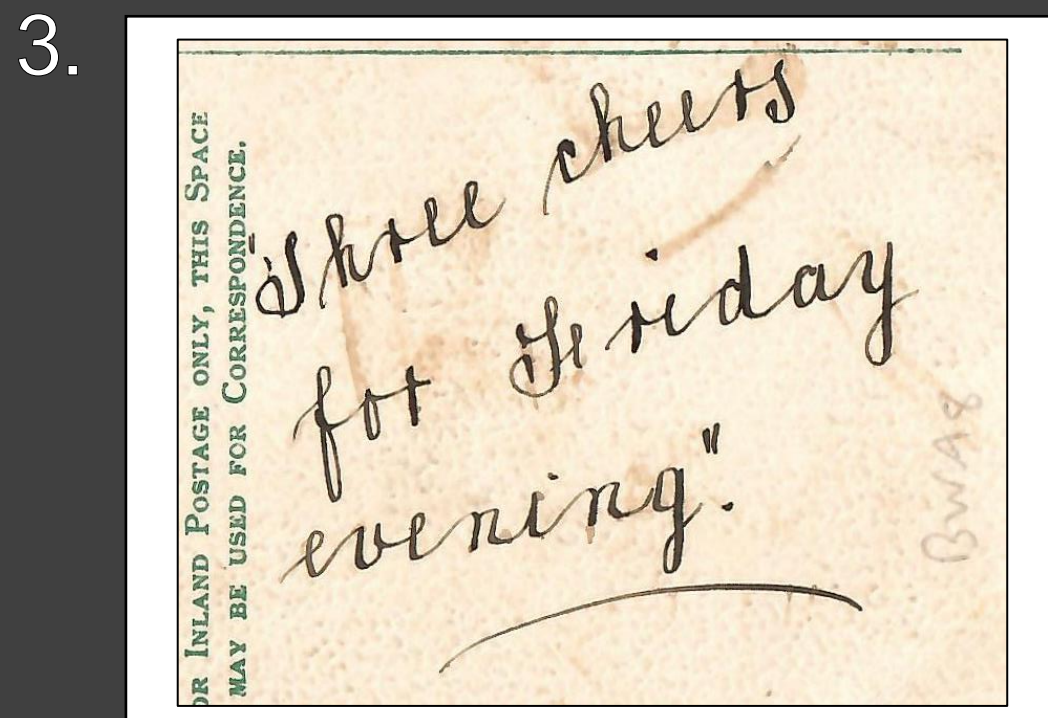 3.
OR INLAND POSTAGE ONLY, THIS SPACE
MAY BE USED FOR CORRESPONDENCE.
"Three cheers
for Friday
evening".